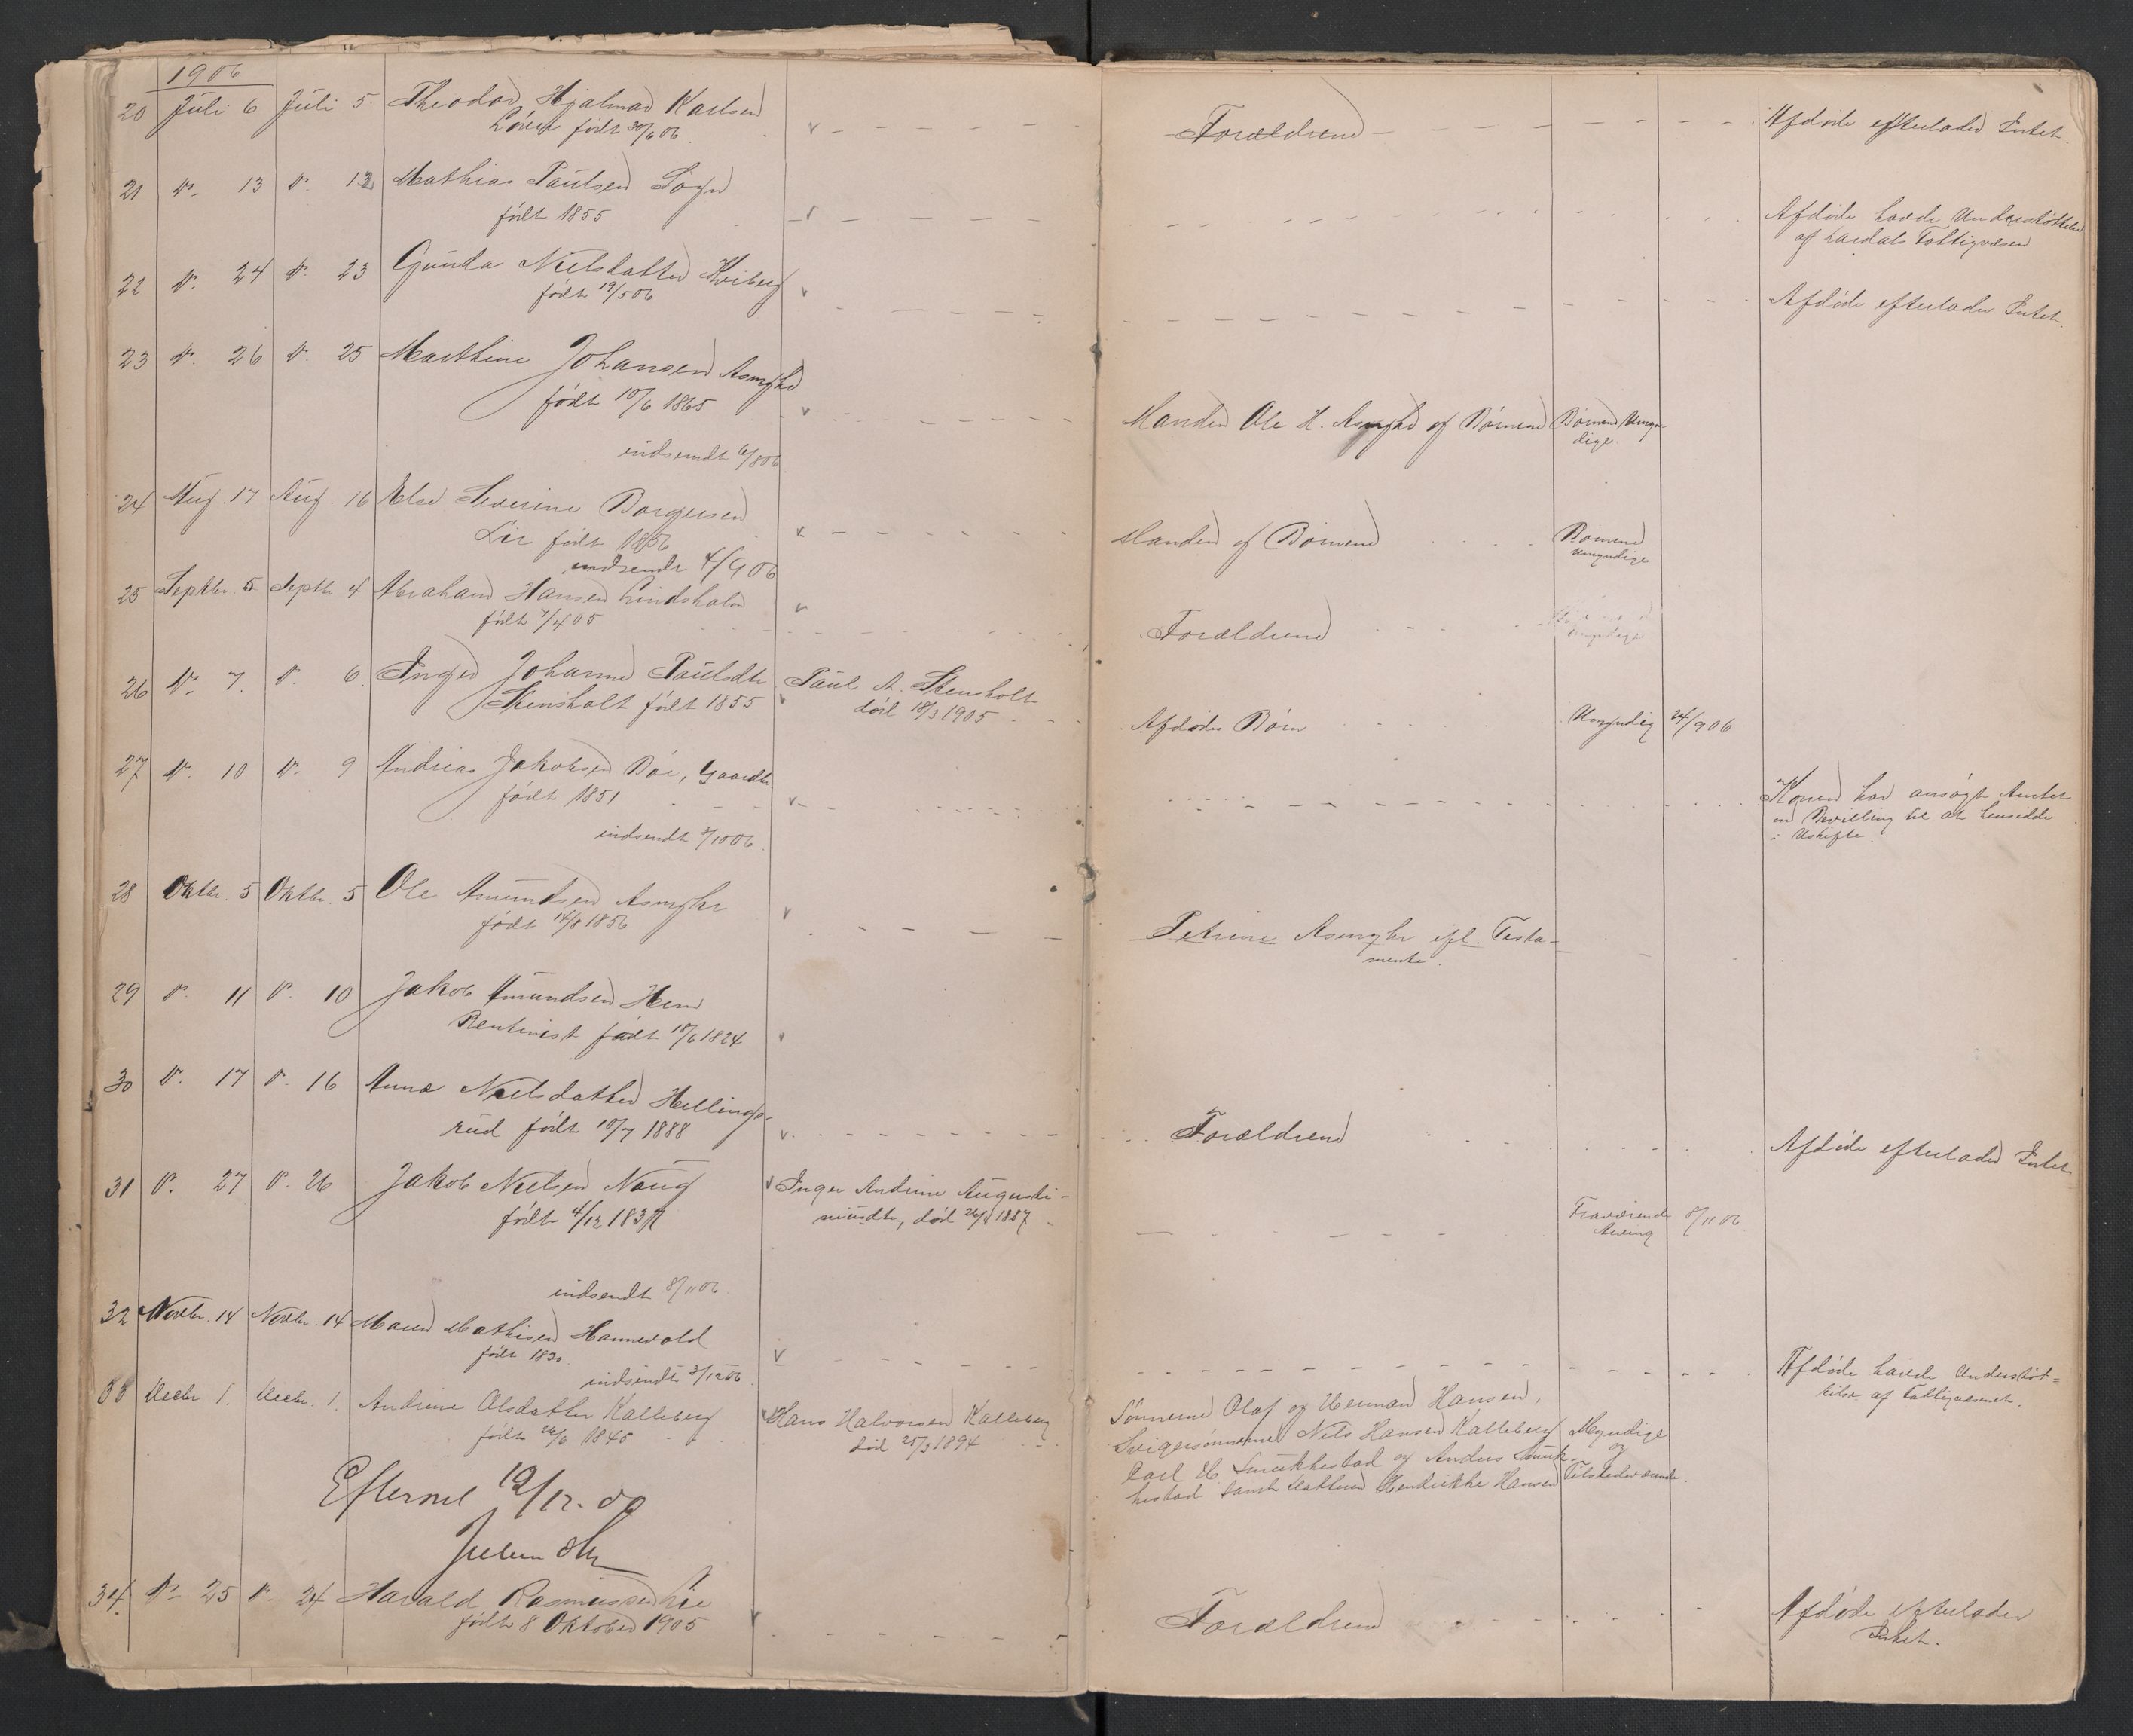 1906
20 Juli 6 Juli 5 Theodor Hjalmar Karlsen - Forældrene - Afdøde efterlader Intet.
født 30/6 06
21 do 13 do 13 Mathias Paulsen Sogn
født 1855 Afdøde havde Understøttelse
af Lardals Fattigvæsen
22 do. 24 do. 23 Gunda Nielsdatter Kiberg
født 19/5 06 Afdøde efterlader Intet.
23 do. 26 do. 25 Marthine Johansen Asmyhr
født 10/6 1865 Manden Ole H. Asmyhr og Børnene Børnene Umyn-
dige.
indsendt 6/8 06
24 Aug. 17 Aug. 16 Else Severine Borgersen Manden og Børnene Børnene
Lie født 1856 Umyndige
indsendt 4/9 06
25 Septbr. 5 Septbr 4 Abraham Hansen Lindsholm Forældrene
født 7/4 05
26 do. 7. do. 6. Inger Johanne Paulsdtr Paul A. Stensholt
Stensholt født 1855 død 18/3 1905 Afdødes Børn Umyndig 24/9 06
27 do. 10 do. 9 Andreas Jakobsen Bøe, Gaardbr.
født 1851 Konen har ansøgt Amtet
om Bevilling til at hensidde
i Uskifte.
indsendt 3/10 06
28 Oktbr. 5 Oktbr. 5 Ole Amundsen Asmyhr
født 14/8 1856 Petrine Asmyhr ifl. Testa-
mente.
29 do. 11 do. 10 Jakob Amundsen Hem
Rentenist født 18/6 1824
30 do. 17 do. 16 Anna Nielsdatter Hellings-
rud født 10/7 1888 Forældrene Afdøde efterlader Intet
31 do. 27 do. 26 Jakob Nielsen Naug Inger Andrine Augusti-
født 4/12 1837 niusdtr, død 26/8 1887 Fraværende 8/11 06
Arving
indsendt 8/11 06
32 Novbr. 14 Novbr. 14 Maren Mathisen Hannevold
født 1820 Afdøde havde Understøt-
telse af Fattigvæsnet.
indsendt 3/12 06
33 Decbr 1. Decbr. 1. Andrine Olsdatter Kalleberg Hans Halvorsen Kalleberg Sønnerne Olaf og Herman Hansen,
født 26/6 1845 død 25/3 1894 Svigersønnerne Nils Hansen Kalleberg Myndige
Carl H. Smukkestad og Anders Smuk- og
kestad samt Datteren Hendrikke Hansen Tilstedeværende.
Efterset 19/12-06
34. do 25 do. 24 Harald Rasmussen Lie
født 8 Oktober 1905 Forældrene Afdøde efterlader
Intet.